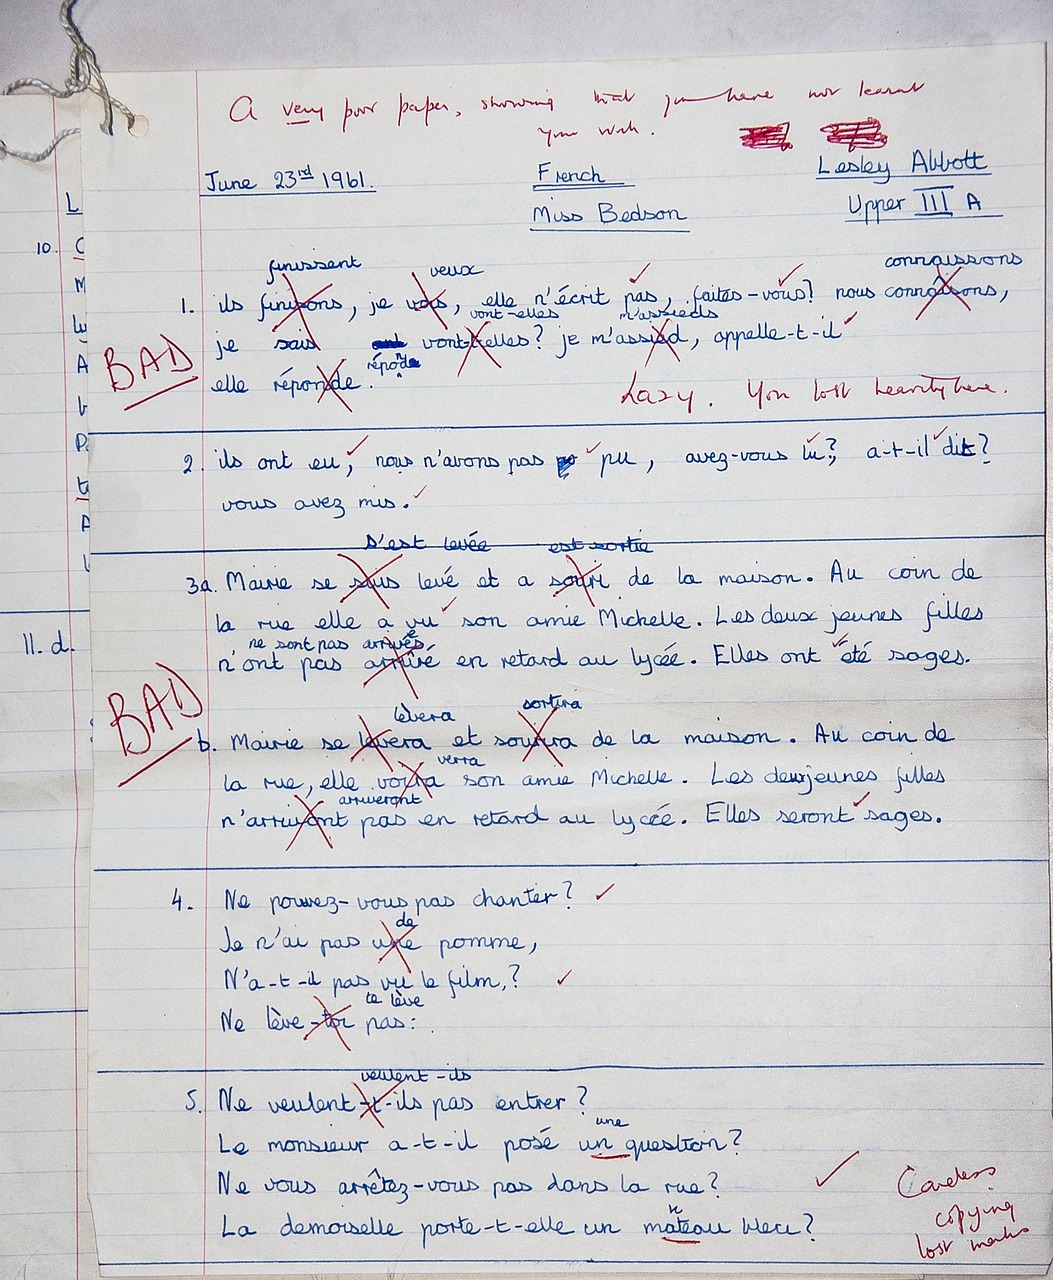 A very poor paper, showing that you have not learnt
your work.
June 23rd 1961.
French
Lesley Abbott
Miss Bedson
Upper III A
L
10. C
M
A
P
A
11. d.
finissent veux connaissons
1. ils finisons, je vois, elle n'écrit pas, faites-vous? nous connaisons,
vont-elles m'assieds
je sais vont-t-elles? je m'assied, appelle-t-il
BAD
réponde
elle réponde.
Lazy. You lost heavily here.
2. ils ont eu, nous n'avons pas pu, avez-vous lu?, a-t-il dit?
vous avez mis.
s'est levée est sortie
3a. Mairie se suis levé et a souri de la maison. Au coin de
la rue elle a vu son amie Michelle. Les deux jeunes filles
ne sont pas arrivées
n'ont pas arrivé en retard au lycée. Elles ont été sages.
BAD
lèvera sortira
b. Mairie se levera et sourira de la maison. Au coin de
verra
la rue, elle voira son amie Michelle. Les deux jeunes filles
arriveront
n'arrivont pas en retard au lycée. Elles seront sages.
4. Ne pouvez-vous pas chanter?
de
Je n'ai pas une pomme,
N'a-t-il pas vu le film,?
te lève
Ne lève-toi pas:
veulent-ils
5. Ne veulent-t-ils pas entrer?
une
Le monsieur a-t-il posé un question?
Ne vous arrêtez-vous pas dans la rue?
n
La demoiselle porte-t-elle un mateau bleu?
Careless
copying
lost marks